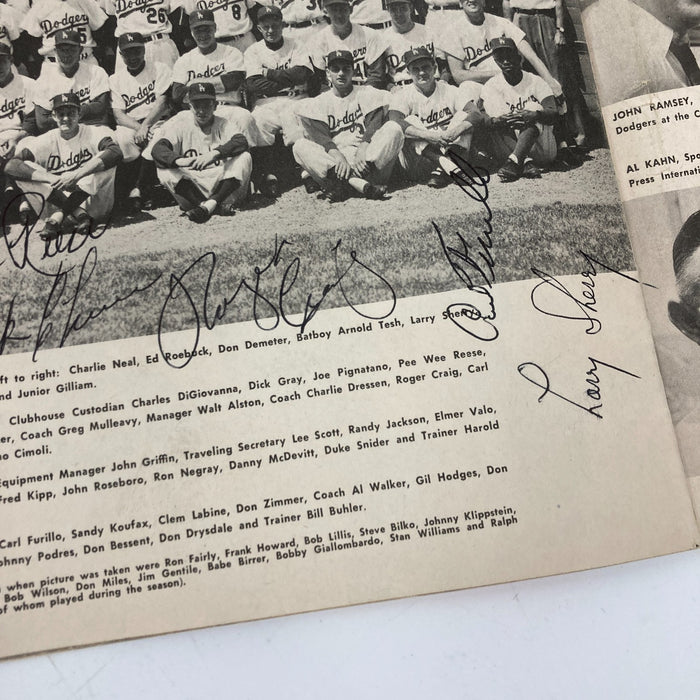 Dodgers
26
8
JOHN RAMSEY,
Dodgers at the C
AL KAHN, Spo
Press Internati
Reese
Roger Craig
Carl Furillo
Larry Sherry
ft to right: Charlie Neal, Ed Roebuck, Don Demeter, Batboy Arnold Tesh, Larry Sherry
nd Junior Gilliam.
Clubhouse Custodian Charles DiGiovanna, Dick Gray, Joe Pignatano, Pee Wee Reese,
er, Coach Greg Mulleavy, Manager Walt Alston, Coach Charlie Dressen, Roger Craig, Carl
no Cimoli.
Equipment Manager John Griffin, Traveling Secretary Lee Scott, Randy Jackson, Elmer Valo,
Fred Kipp, John Roseboro, Ron Negray, Danny McDevitt, Duke Snider and Trainer Harold
Carl Furillo, Sandy Koufax, Clem Labine, Don Zimmer, Coach Al Walker, Gil Hodges, Don
ohnny Podres, Don Bessent, Don Drysdale and Trainer Bill Buhler.
when picture was taken were Ron Fairly, Frank Howard, Bob Lillis, Steve Bilko, Johnny Klippstein,
Bob Wilson, Don Miles, Jim Gentile, Babe Birrer, Bobby Giallombardo, Stan Williams and Ralph
of whom played during the season).